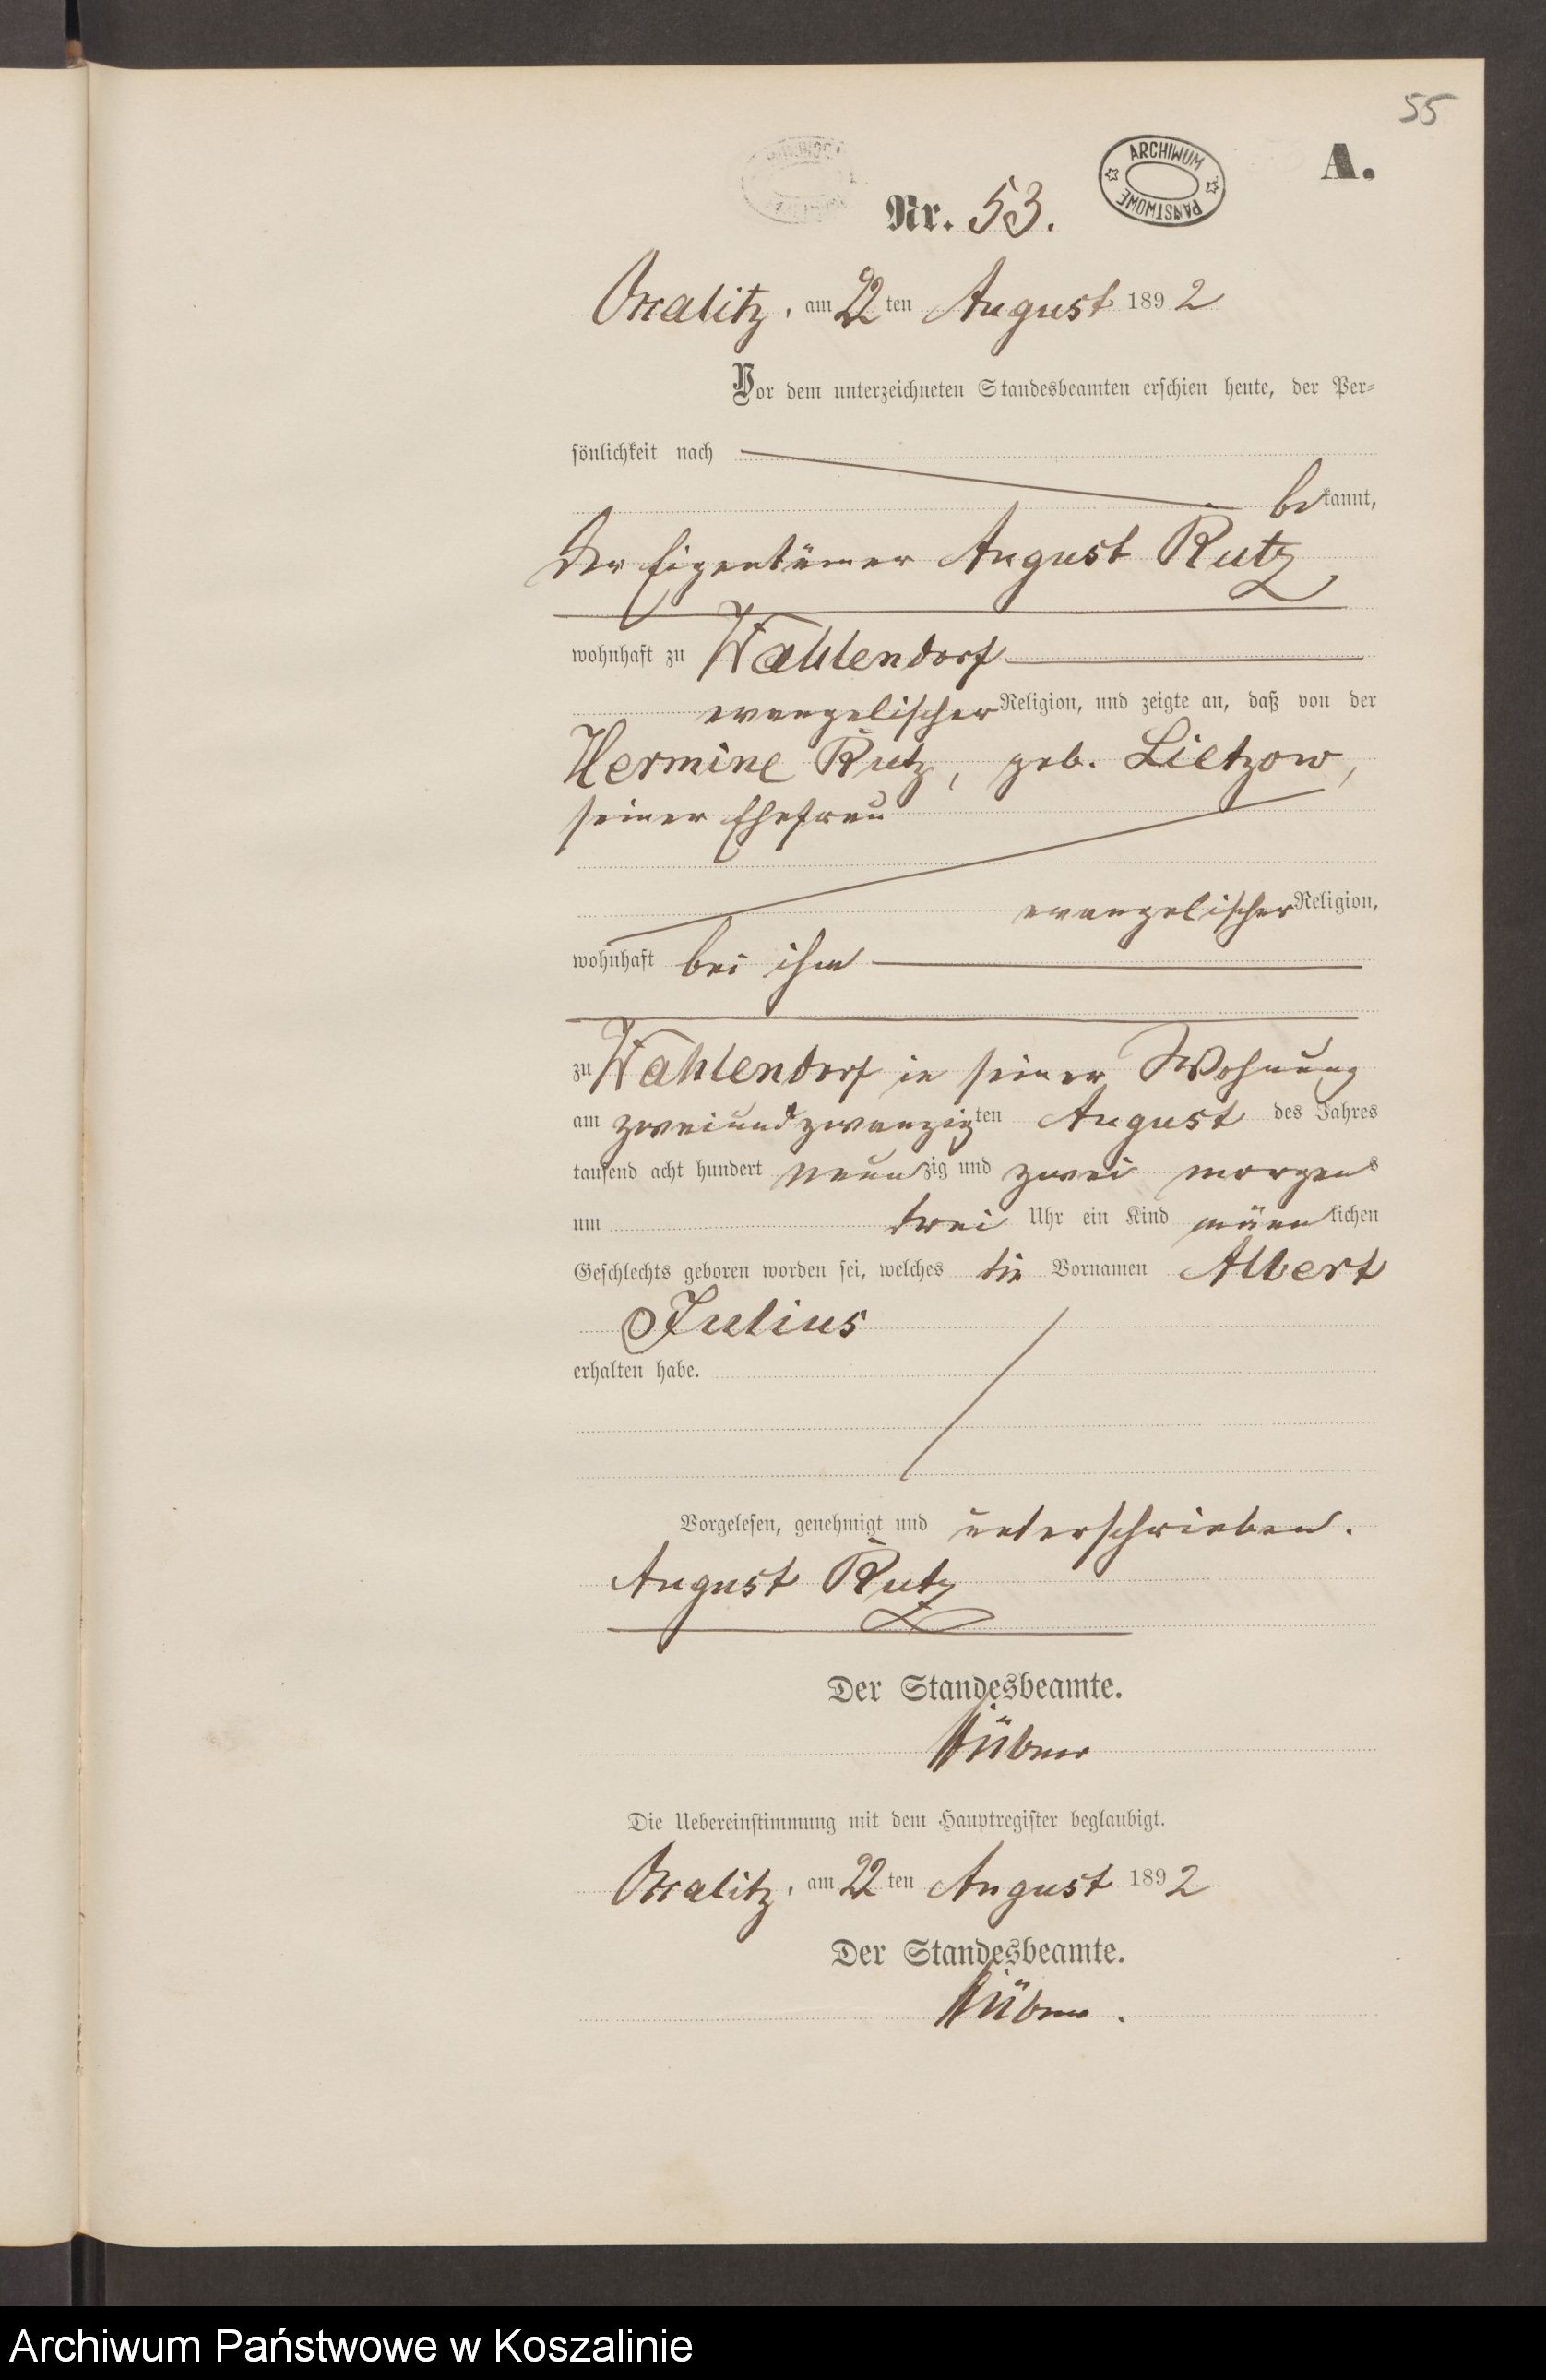 55
A.
ARCHIWUM PAŃSTWOWE
Nr. 53.
Wahlendorf
am 22ten August 1892
Vor dem unterzeichneten Standesbeamten erschien heute, der Per-
sönlichkeit nach
bekannt,
der Eigentümer August Rutz
wohnhaft zu Wahlendorf
evangelischer Religion, und zeigte an, daß von der
Hermine Rutz, geb. Lietzow,
seiner Ehefrau
evangelischer Religion,
wohnhaft bei ihm
zu Wahlendorf in seiner Wohnung
am zweiundzwanzigten August des Jahres
tausend acht hundert neunzig und zwei morgens
um drei Uhr ein Kind männlichen
Geschlechts geboren worden sei, welches die Vornamen Albert
Julius
erhalten habe.
Vorgelesen, genehmigt und unterschrieben.
August Rutz
Der Standesbeamte.
Hübner
Die Uebereinstimmung mit dem Hauptregister beglaubigt.
am 22ten August 1892
Der Standesbeamte.
Hübner.
Archiwum Państwowe w Koszalinie